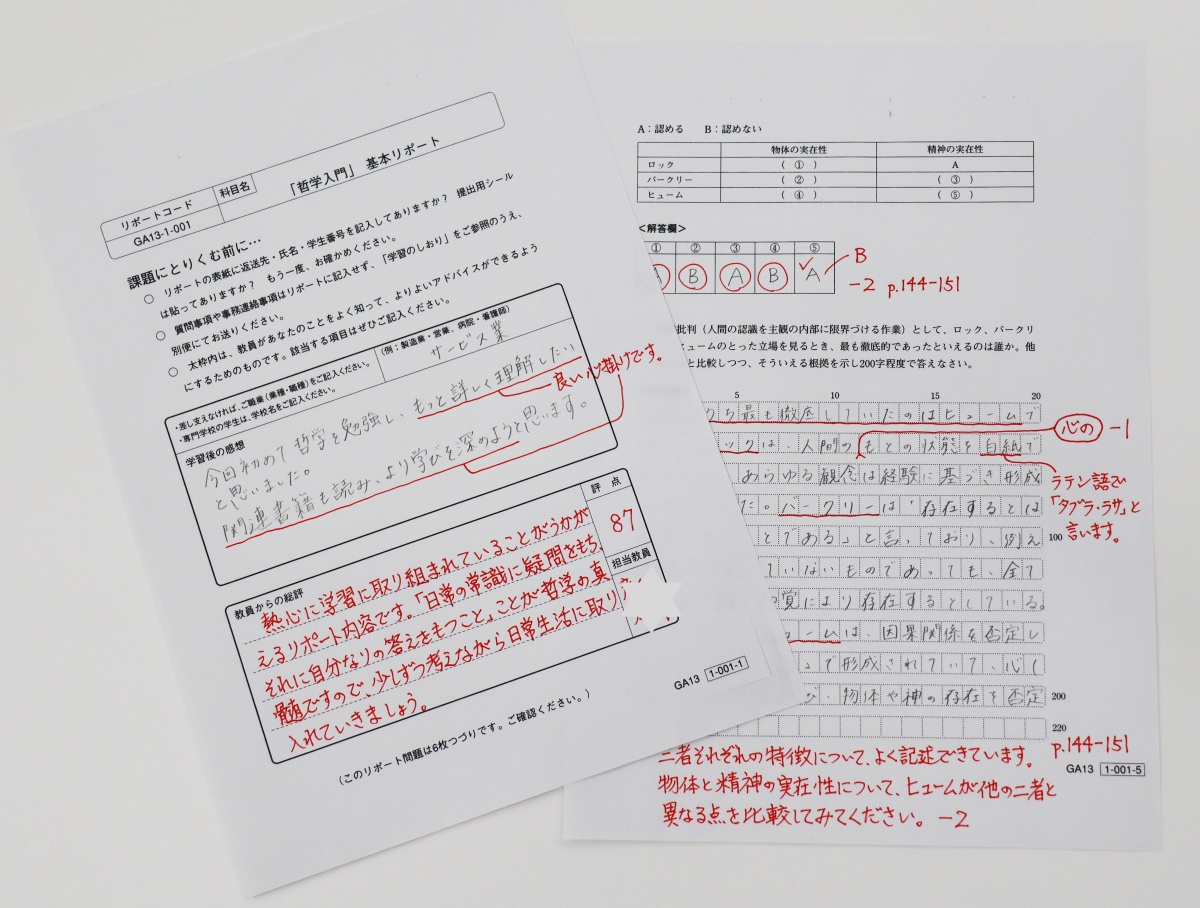 リポートコード
科目名
「哲学入門」 基本リポート
GA13-1-001
課題にとりくむ前に…
○ リポートの表紙に返送先・氏名・学生番号を記入してありますか？ 提出用シール
は貼ってありますか？ もう一度、お確かめください。
○ 質問事項や事務連絡事項はリポートに記入せず、「学習のしおり」をご参照のうえ、
別便にてお送りください。
○ 太枠内は、教員があなたのことをよく知って、よりよいアドバイスができるよう
にするためのものです。該当する項目はぜひご記入ください。
・差し支えなければ、ご職業（業種・職種）をご記入ください。
・専門学校の学生は、学校名をご記入ください。
（例：製造業・営業、病院・看護師）
サービス業
学習後の感想
今回初めて哲学を勉強し、もっと詳しく理解したい
と思いました。
関連書籍も読み、より学びを深めようと思います。
良い心掛けです。
教員からの総評
熱心に学習に取り組まれていることがうかが
えるリポート内容です。「日常の常識に疑問をもち、
それに自分なりの答えをもつこと」ことが哲学の真
髄ですので、少しずつ考えながら日常生活に取り
入れていきましょう。
評 点
87
担当教員
GA13 1-001-1
（このリポート問題は6枚つづりです。ご確認ください。）
A：認める B：認めない
物体の実在性 精神の実在性
ロック （ ① ） A
バークリー （ ② ） （ ③ ）
ヒューム （ ④ ） （ ⑤ ）
<解答欄>
① ② ③ ④ ⑤
B A B A
B
-2 p.144-151
批判（人間の認識を主観の内部に限界づける作業）として、ロック、バークリ
ヒュームのとった立場を見るとき、最も徹底的であったといえるのは誰か。他
と比較しつつ、そういえる根拠を示し200字程度で答えなさい。
5 10 20
うち最も徹底していたのはヒュームで
ックは、人間のもとの状態を白紙で
心の -1
あらゆる観念は経験に基づき形成
ラテン語で
「タブラ・ラサ」と
言います。
た。バークリーは「存在するとは
とである」と言っており、例え 100
ていないものであっても、全て
覚により存在するとしている。
ュームは、因果関係を否定し
」で形成されていて、心(
び、物体や神の存在を否定 200
220
三者それぞれの特徴について、よく記述できています。
p.144-151
GA13 1-001-5
物体と精神の実在性について、ヒュームが他の二者と
異なる点を比較してみてください。 -2